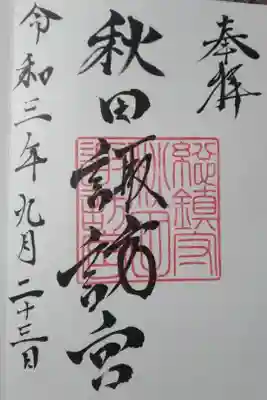 奉拝
秋田諏訪宮
令和三年九月二十三日
総鎮守
秋田
諏訪宮